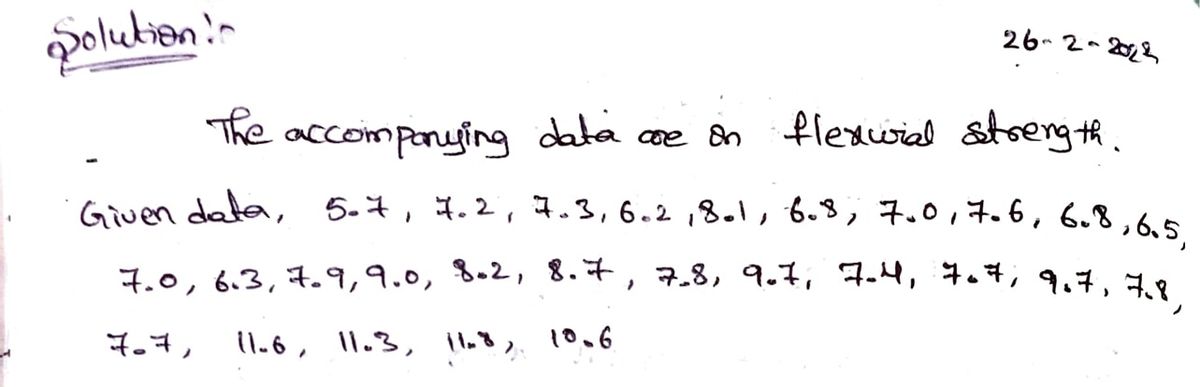 Solution:-
26-2-2022
The accompanying data are on flexurial strength.
Given data, 5.7, 7.2, 7.3, 6.2, 8.1, 6.8, 7.0, 7.6, 6.8, 6.5,
7.0, 6.3, 7.9, 9.0, 8.2, 8.7, 7.8, 9.7, 7.4, 7.7, 9.7, 7.8,
7.7, 11.6, 11.3, 11.8, 10.6